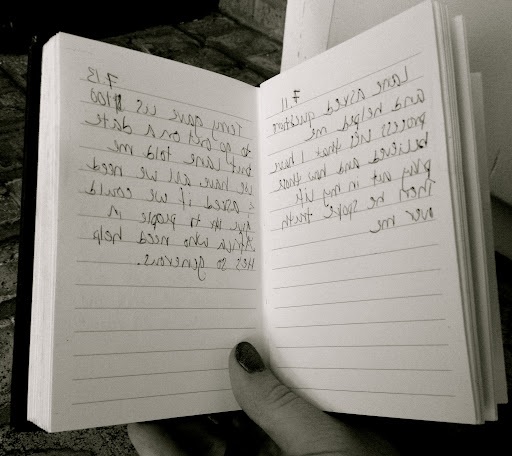 7.11
Lane asked question
and helped me
process lies that I have
believed and how those
play out in my life
Then he spoke truth
over me
7.13
Terry gave us $100
to go out on a date
but Lane told me
we have all we need
& asked if we could
give it to people in
Africa who need help
He's so generous.